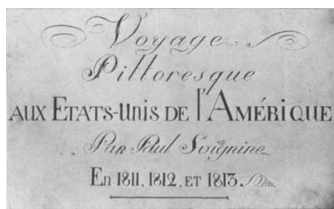 Voyage
Pittoresque
AUX ETATS-UNIS DE l'AMÉRIQUE
Par Paul Svignine
EN 1811, 1812, ET 1813.